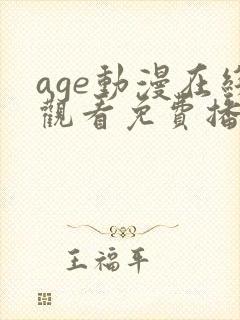 age動漫在線
觀看免費播
王福平